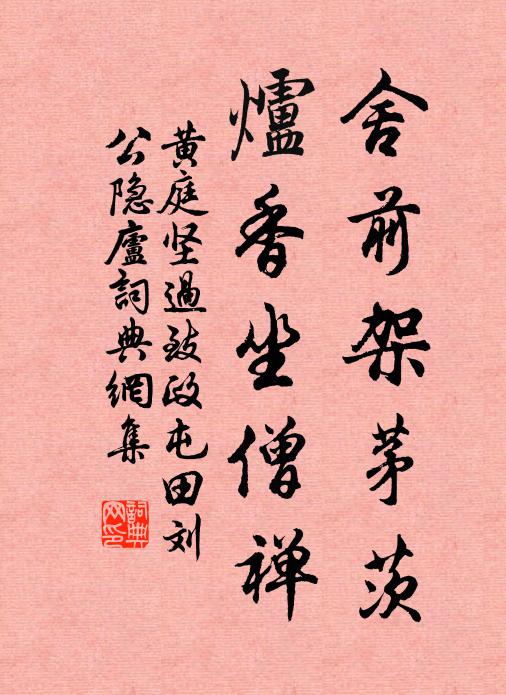 舍前架茅茨
爐香坐僧禅
黄庭坚過致政屯田刘
公隐廬詞典網集
詞典网印